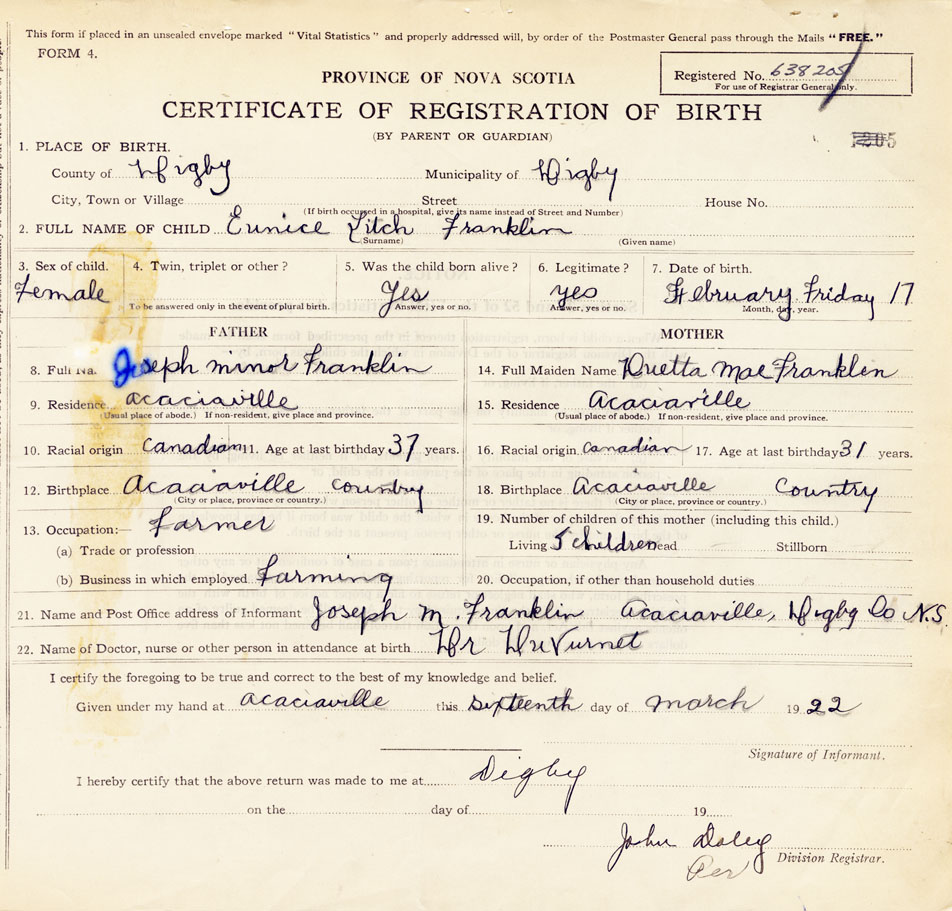 This form if placed in an unsealed envelope marked "Vital Statistics" and properly addressed will, by order of the Postmaster General pass through the Mails "FREE."
FORM 4.
PROVINCE OF NOVA SCOTIA
Registered No. 638205
For use of Registrar General only.
CERTIFICATE OF REGISTRATION OF BIRTH
(BY PARENT OR GUARDIAN)
1. PLACE OF BIRTH.
County of Digby Municipality of Digby
City, Town or Village Street House No.
(If birth occurred in a hospital, give its name instead of Street and Number)
2. FULL NAME OF CHILD Eunice Titch Franklin
(Surname) (Given name)
3. Sex of child. 4. Twin, triplet or other? 5. Was the child born alive? 6. Legitimate? 7. Date of birth.
Female Yes yes February Friday 17
To be answered only in the event of plural birth. Answer, yes or no. Answer, yes or no. Month, day, year.
FATHER MOTHER
8. Full Na. Joseph minor Franklin 14. Full Maiden Name Druetta Mae Franklin
9. Residence acaciaville 15. Residence Acaciaville
(Usual place of abode.) If non-resident, give place and province. (Usual place of abode.) If non-resident, give place and province.
10. Racial origin Canadian 11. Age at last birthday 37 years. 16. Racial origin Canadian 17. Age at last birthday 31 years.
12. Birthplace Acaciaville country 18. Birthplace Acaciaville Country
(City or place, province or country.) (City or place, province or country.)
13. Occupation:— Farmer 19. Number of children of this mother (including this child.)
(a) Trade or profession Living 5 children ead Stillborn
(b) Business in which employed Farming 20. Occupation, if other than household duties
21. Name and Post Office address of Informant Joseph M. Franklin Acaciaville, Digby Co N.S.
22. Name of Doctor, nurse or other person in attendance at birth Dr DuVurnet
I certify the foregoing to be true and correct to the best of my knowledge and belief.
Given under my hand at acaciaville this sixteenth day of march 1922
Signature of Informant.
I hereby certify that the above return was made to me at Digby
on the day of 19
John Daley
Per Division Registrar.